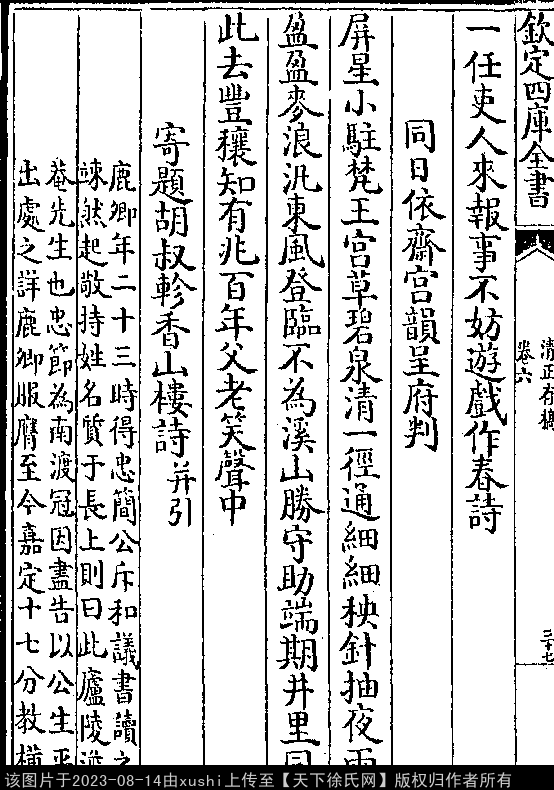 欽定四庫全書
清正存稿
卷六
三十七
一任吏人來報事不妨遊戲作春詩
同日依齋宫韻呈府判
屏星小駐梵王宫草碧泉清一徑通細細秧針抽夜雨
盈盈麥浪汎東風登臨不為溪山勝守助端期井里同
此去豐穰知有兆百年父老笑聲中
寄題胡叔軫香山樓詩并引
鹿卿年二十三時得忠簡公斥和議書讀之
竦然起敬持姓名質于長上則曰此廬陵澹
菴先生也忠節為南渡冠因盡告以公生平
出處之詳鹿卿服膺至今嘉定十七分教
该图片于2023-08-14由xushi上传至【天下徐氏网】版权归作者所有